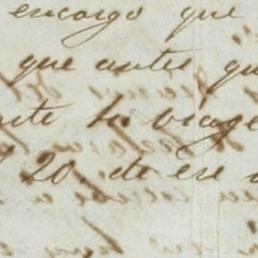 encargo que
que antes qu
nte tu viage
20 de ese